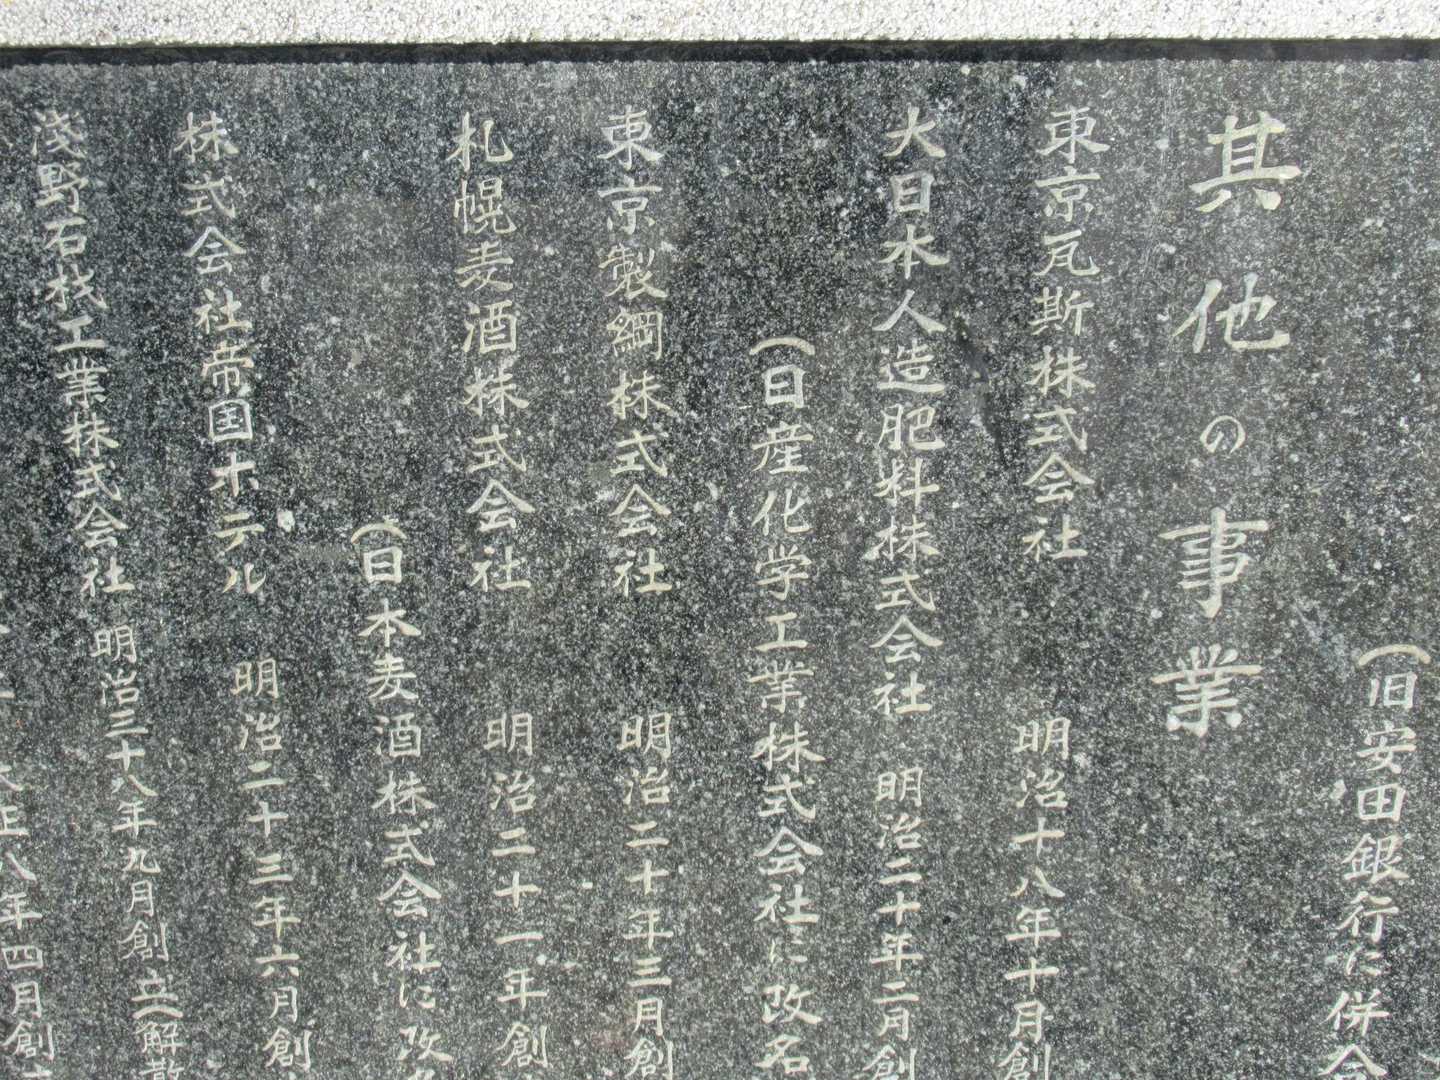 (旧安田銀行に併合
其他の事業
東京瓦斯株式会社 明治十八年十月創
大日本人造肥料株式会社 明治二十年二月創
(日産化学工業株式会社に改名
東京製綱株式会社 明治二十年三月創
札幌麦酒株式会社 明治二十一年創
(日本麦酒株式会社に改
株式会社帝国ホテル 明治二十三年六月創
浅野石材工業株式会社 明治三十八年九月創立(解散
正八年四月創